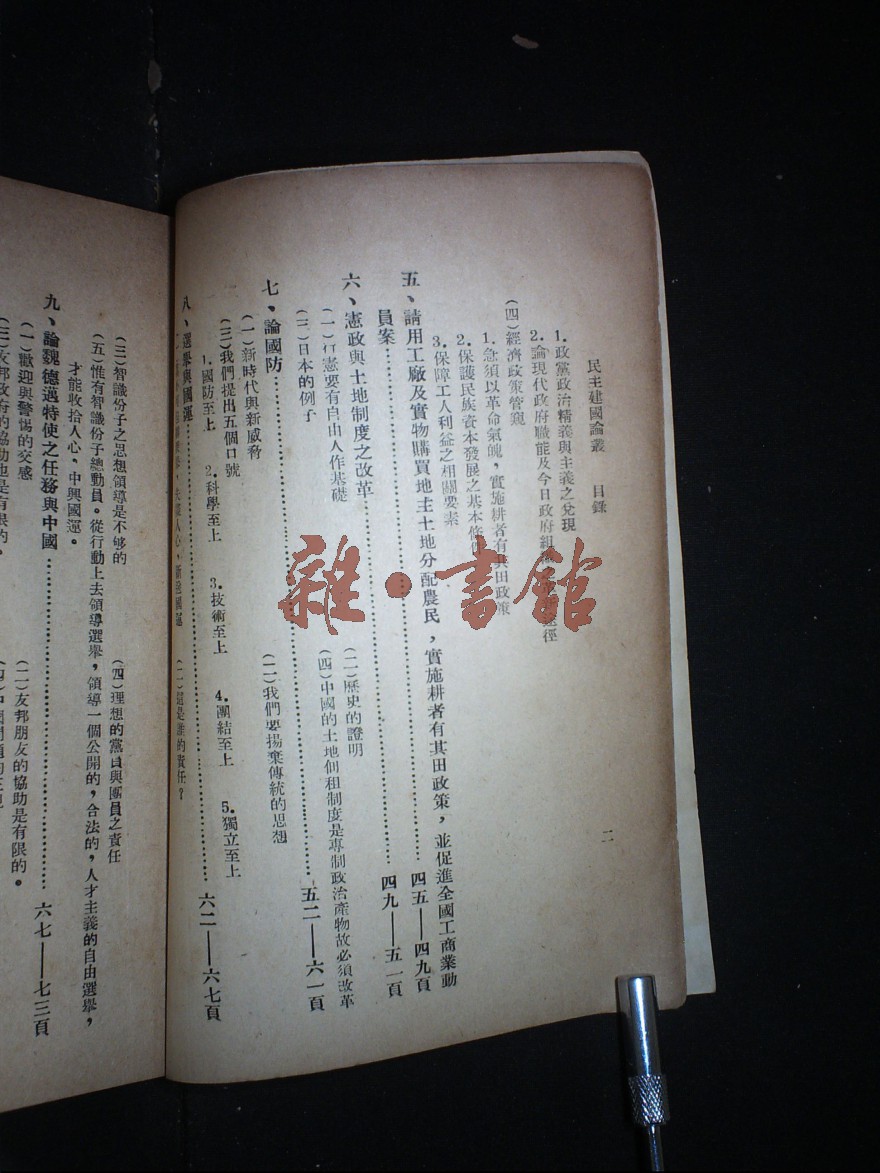 民主建國論叢　目錄
二
1.政黨政治精義與主義之兌現
2.論現代政府職能及今日政府組
徑
(四)經濟政策管窺
1.急須以革命氣魄，實施耕者有其田政策
2.保護民族資本發展之基本條件
3.保障工人利益之相關要素
五、請用工廠及實物購買地主土地分配農民，實施耕者有其田政策，並促進全國工商業動
員案……四五——四九頁
六、憲政與土地制度之改革……四九——五一頁
(一)行憲要有自由人作基礎　(二)歷史的證明
(三)日本的例子　(四)中國的土地佃租制度是專制政治產物故必須改革
七、論國防……五二——六一頁
(一)新時代與新威脅　(二)我們要揚棄傳統的思想
(三)我們提出五個口號
1.國防至上　2.科學至上　3.技術至上　4.團結至上　5.獨立至上
八、選舉與國運……六二——六七頁
(二)這是誰的責任？
(三)智識份子之思想領導是不够的　(四)理想的黨員與團員之責任
(五)惟有智識份子總動員。從行動上去領導選舉，領導一個公開的，合法的，人才主義的自由選舉，
才能收拾人心，中興國運。
九、論魏德邁特使之任務與中國……六七——七三頁
(一)歡迎與警惕的交感　(二)友邦朋友的協助是有限的。
(三)友邦政府的協助也是有限的。
雜·書館